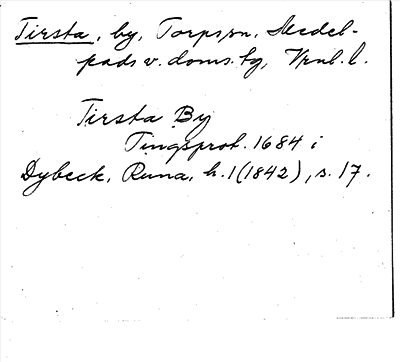 Tirsta, by, Torps sn, Medel-
pads v. doms. tg, Vrnl. l.
Tirsta By
Tingsprot. 1684 i
Dybeck, Runa, h. 1 (1842), s. 17.